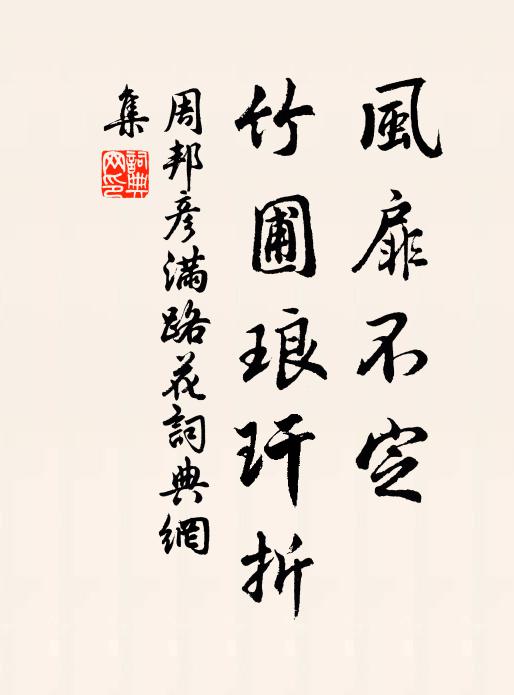 風扉不定
竹圃琅玕折
周邦彦滿路花詞典網
集
詞典網印